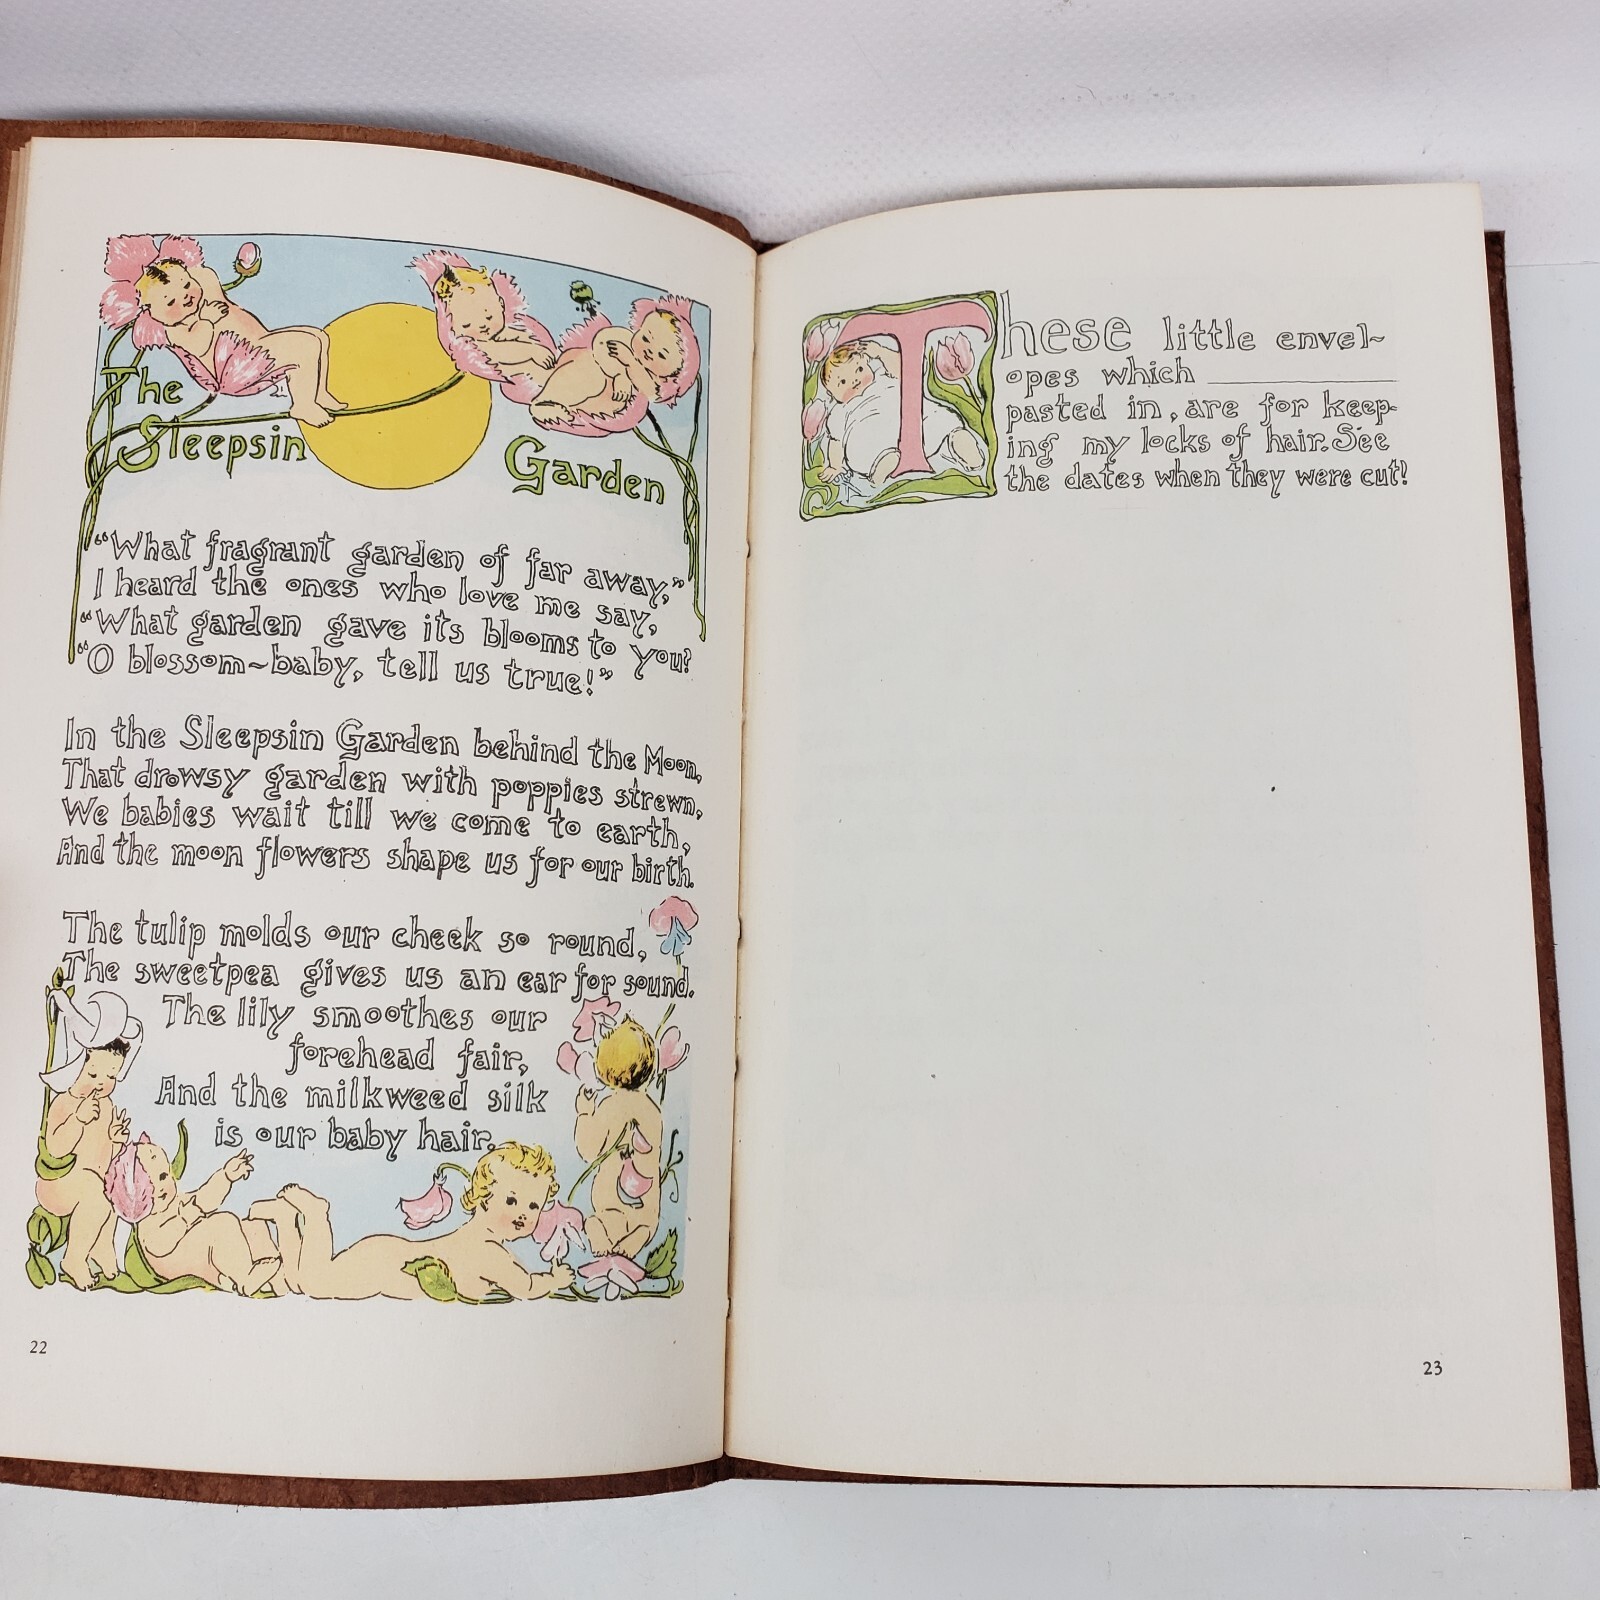 The
Sleepsin
Garden
“What fragrant garden of far away,”
I heard the ones who love me say,
“What garden gave its blooms to you?
“O blossom~baby, tell us true!”
In the Sleepsin Garden behind the Moon,
That drowsy garden with poppies strewn,
We babies wait till we come to earth,
And the moon flowers shape us for our birth.
The tulip molds our cheek so round,
The sweetpea gives us an ear for sound.
The lily smoothes our
forehead fair,
And the milkweed silk
is our baby hair.
22
These little envel~
opes which
pasted in, are for keep-
ing my locks of hair. See
the dates when they were cut!
23